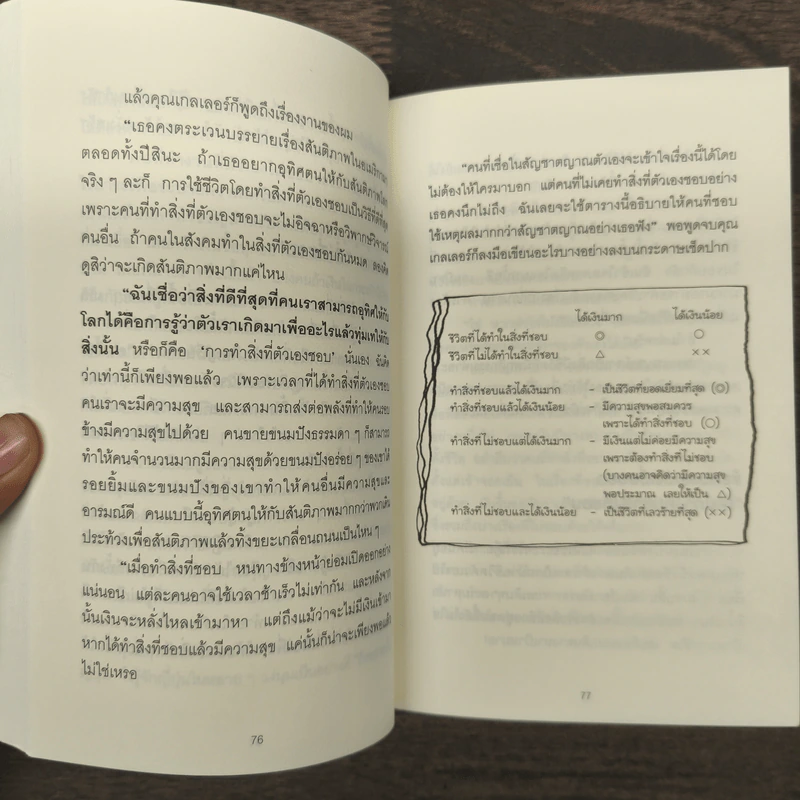 แล้วคุณเกลเลอร์ก็พูดถึงเรื่องงานของผม
“เธอคงตระเวนบรรยายเรื่องสันติภาพในอเมริกามา
ตลอดทั้งปีสินะ ถ้าเธออยากอุทิศตนให้กับสันติภาพโลก
จริง ๆ ละก็ การใช้ชีวิตโดยทำสิ่งที่ตัวเองชอบเป็นวิธีที่ดีที่สุด
เพราะคนที่ทำสิ่งที่ตัวเองชอบจะไม่อิจฉาหรือวิพากษ์วิจารณ์
คนอื่น ถ้าคนในสังคมทำในสิ่งที่ตัวเองชอบกันหมด ลองคิด
ดูสิว่าจะเกิดสันติภาพมากแค่ไหน
“ฉันเชื่อว่าสิ่งที่ดีที่สุดที่คนเราสามารถอุทิศให้กับ
โลกได้คือการรู้ว่าตัวเราเกิดมาเพื่ออะไรแล้วทุ่มเทให้กับ
สิ่งนั้น หรือก็คือ ‘การทำสิ่งที่ตัวเองชอบ’ นั่นเอง ฉันคิด
ว่าเท่านี้ก็เพียงพอแล้ว เพราะเวลาที่ได้ทำสิ่งที่ตัวเองชอบ
คนเราจะมีความสุข และสามารถส่งต่อพลังที่ทำให้คนรอบ
ข้างมีความสุขไปด้วย คนขายขนมปังธรรมดา ๆ ก็สามารถ
ทำให้คนจำนวนมากมีความสุขด้วยขนมปังอร่อย ๆ ของเขาได้
รอยยิ้มและขนมปังของเขาทำให้คนอื่นมีความสุขและ
อารมณ์ดี คนแบบนี้อุทิศตนให้กับสันติภาพมากกว่าพวกเดิน
ประท้วงเพื่อสันติภาพแล้วทิ้งขยะเกลื่อนถนนเป็นไหน ๆ
“เมื่อทำสิ่งที่ชอบ หนทางข้างหน้าย่อมเปิดออกอย่าง
แน่นอน แต่ละคนอาจใช้เวลาช้าเร็วไม่เท่ากัน และหลังจาก
นั้นเงินจะหลั่งไหลเข้ามาหา แต่ถึงแม้ว่าจะไม่มีเงินเข้ามา
หากได้ทำสิ่งที่ชอบแล้วมีความสุข แค่นั้นก็น่าจะเพียงพอแล้ว
ไม่ใช่เหรอ
76
“คนที่เชื่อในสัญชาตญาณตัวเองจะเข้าใจเรื่องนี้ได้โดย
ไม่ต้องให้ใครมาบอก แต่คนที่ไม่เคยทำสิ่งที่ตัวเองชอบอย่าง
เธอคงนึกไม่ถึง ฉันเลยจะใช้ตารางนี้อธิบายให้คนที่ชอบ
ใช้เหตุผลมากกว่าสัญชาตญาณอย่างเธอฟัง” พอพูดจบคุณ
เกลเลอร์ก็ลงมือเขียนอะไรบางอย่างลงบนกระดาษเช็ดปาก
ได้เงินมาก ได้เงินน้อย
ชีวิตที่ได้ทำในสิ่งที่ชอบ ◎ ○
ชีวิตที่ไม่ได้ทำในสิ่งที่ชอบ △ ××
ทำสิ่งที่ชอบแล้วได้เงินมาก – เป็นชีวิตที่ยอดเยี่ยมที่สุด (◎)
ทำสิ่งที่ชอบแล้วได้เงินน้อย – มีความสุขพอสมควร
เพราะได้ทำสิ่งที่ชอบ (○)
ทำสิ่งที่ไม่ชอบแต่ได้เงินมาก – มีเงินแต่ไม่ค่อยมีความสุข
เพราะต้องทำสิ่งที่ไม่ชอบ
(บางคนอาจคิดว่ามีความสุข
พอประมาณ เลยให้เป็น △)
ทำสิ่งที่ไม่ชอบและได้เงินน้อย – เป็นชีวิตที่เลวร้ายที่สุด (××)
77